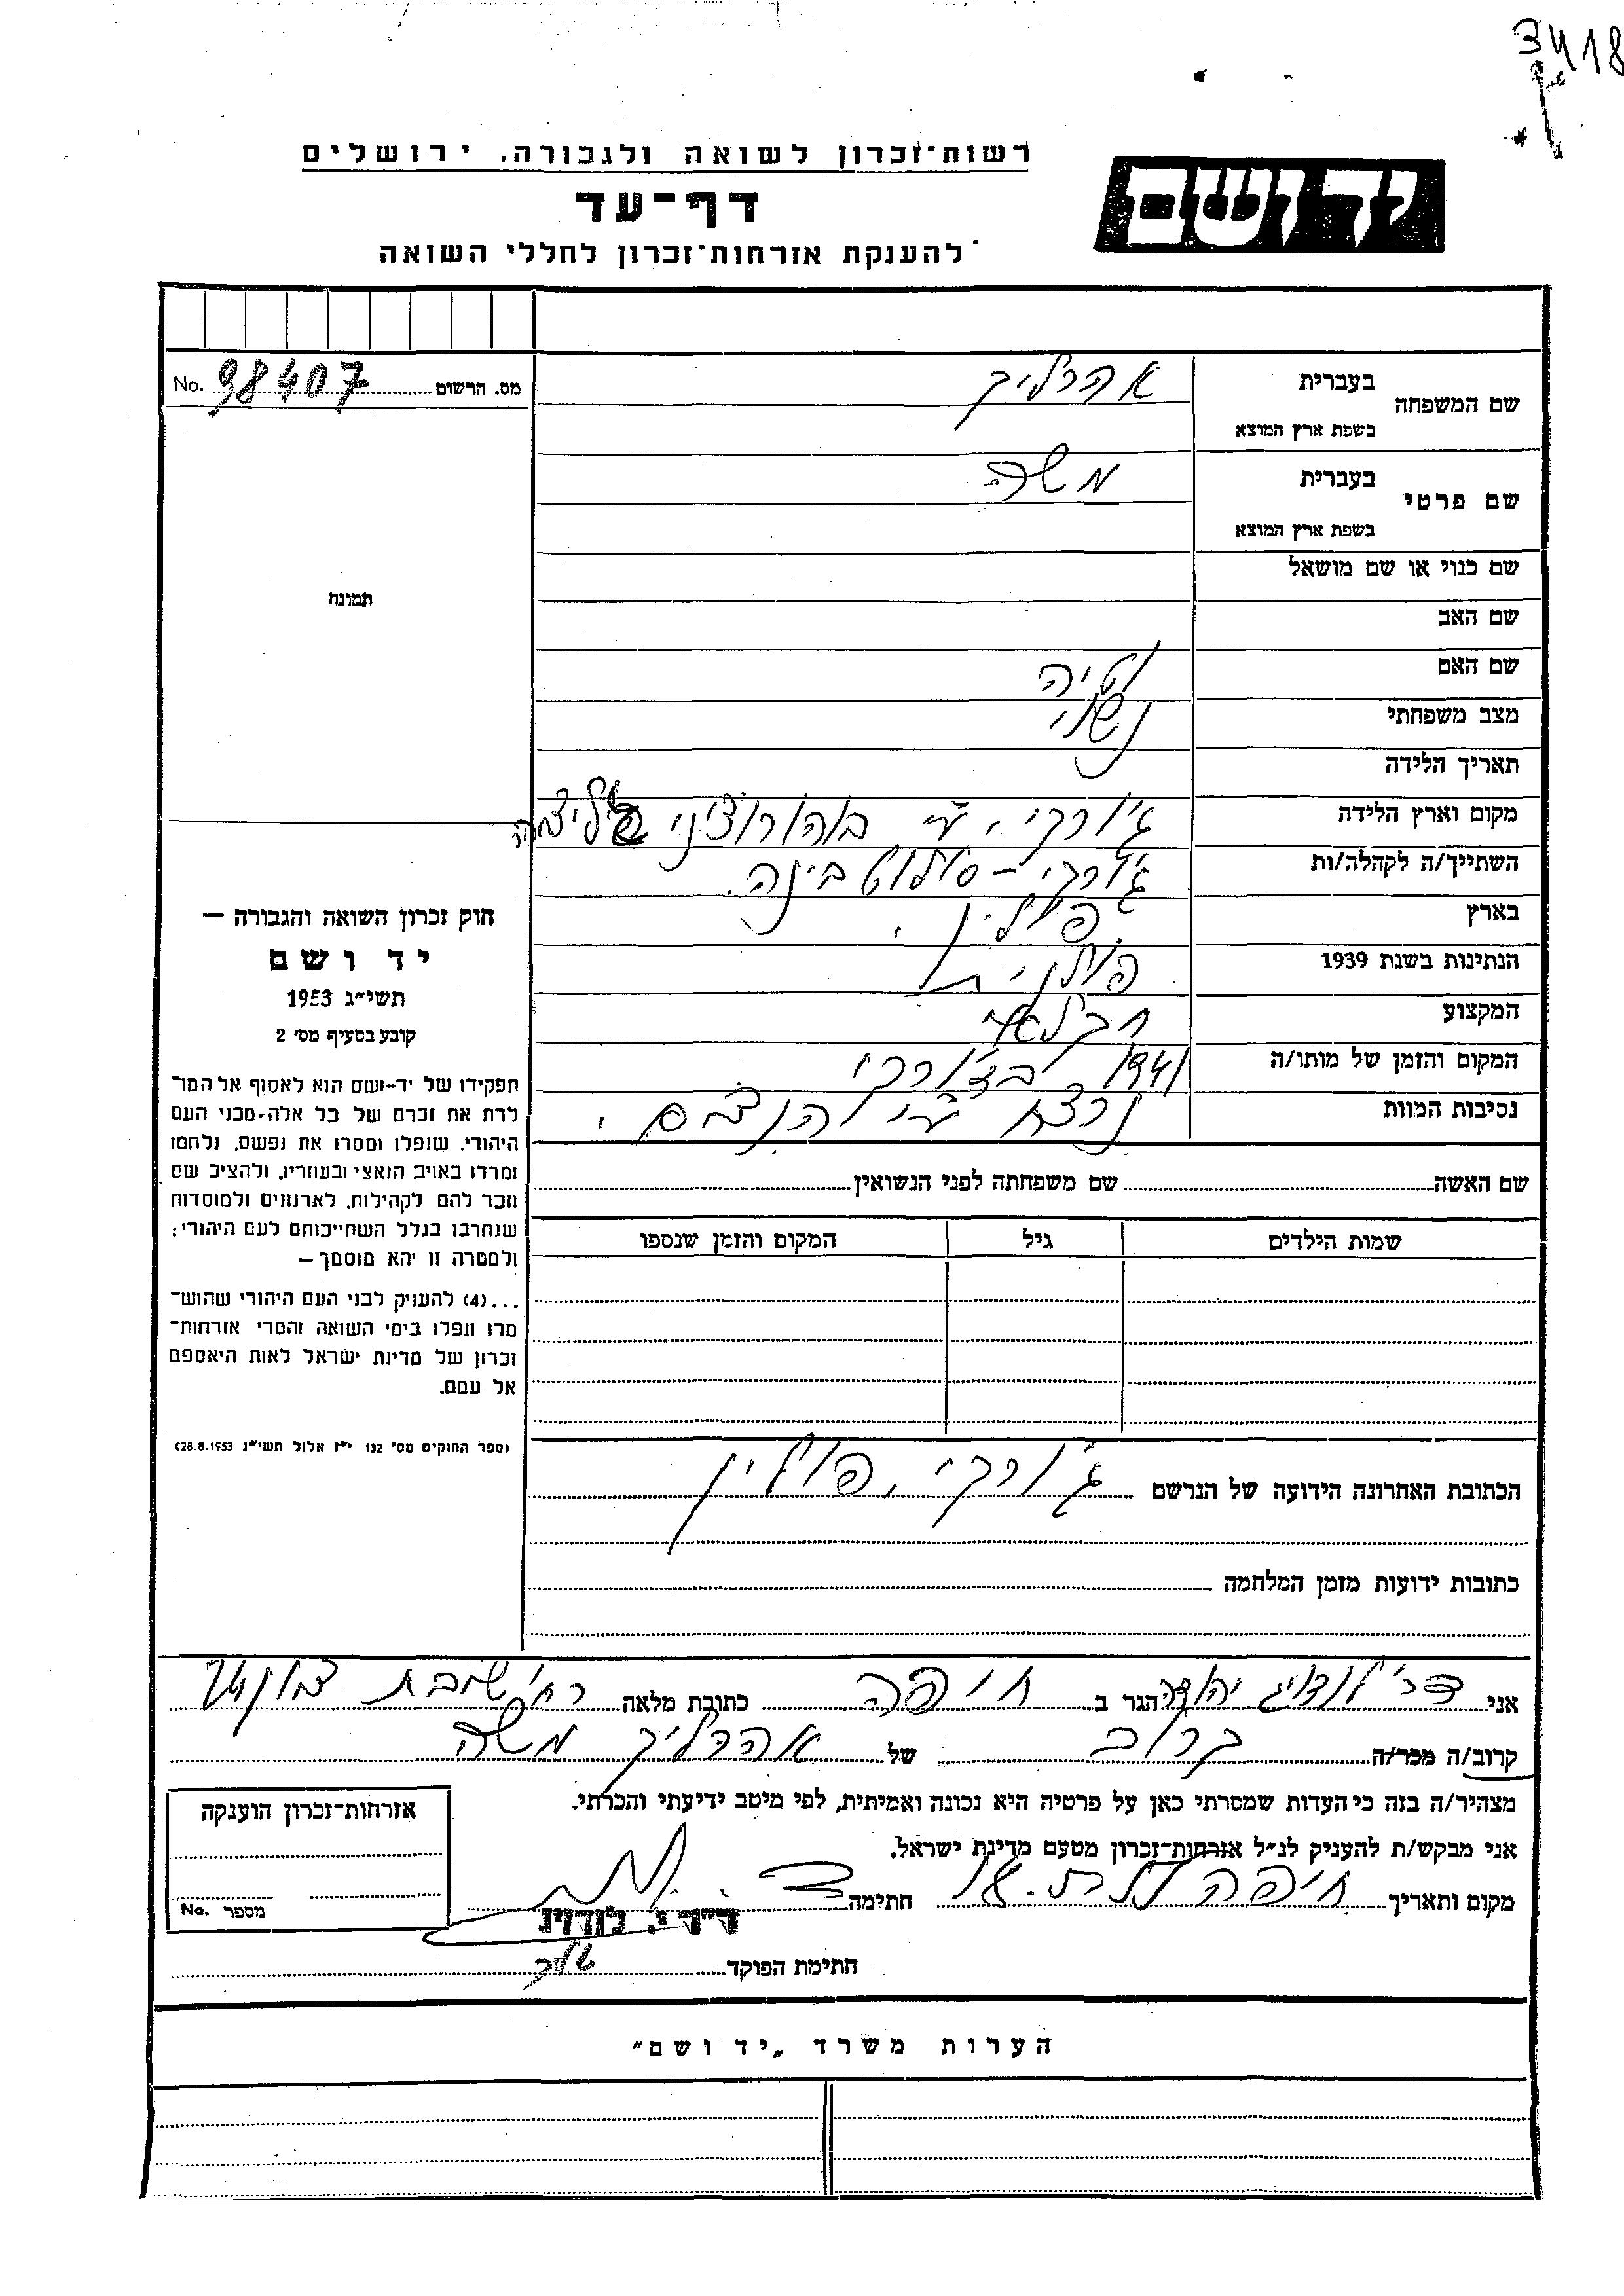 3418
רשות־זכרון לשואה ולגבורה, ירושלים
יד ושם
דף־עד
להענקת אזרחות־זכרון לחללי השואה
מס. הרשום 98407 No.
שם המשפחה
בעברית אהרליך
בשפת ארץ המוצא
שם פרטי
בעברית משה
בשפת ארץ המוצא
שם כנוי או שם מושאל
שם האב
שם האם
מצב משפחתי נשוי
תאריך הלידה
מקום וארץ הלידה
השתייך/ה לקהלה/ות
בארץ פולין.
הנתינות בשנת 1939 פולנית
המקצוע חקלאי
המקום והזמן של מותו/ה 1941
נסיבות המוות נרצח ע״י
תמונה
חוק זכרון השואה והגבורה —
יד ושם
תשי״ג 1953
קובע בסעיף מס׳ 2
תפקידו של יד-ושם הוא לאסוף אל המו־
לדת את זכרם של כל אלה-מבני העם
היהודי, שנפלו ומסרו את נפשם, נלחמו
ומרדו באויב הנאצי ובעוזריו, ולהציב שם
וזכר להם לקהילות, לארגונים ולמוסדות
שנחרבו בגלל השתייכותם לעם היהודי;
ולמטרה זו יהא מוסמך —
...(4) להעניק לבני העם היהודי שהוש־
מדו ונפלו בימי השואה והמרי אזרחות־
זכרון של מדינת ישראל לאות היאספם
אל עמם.
(ספר החוקים מס׳ 132 י״ז אלול תשי״ג 28.8.1953)
שם האשה שם משפחתה לפני הנשואין
שמות הילדים גיל המקום והזמן שנספו
הכתובת האחרונה הידועה של הנרשם פולין
כתובות ידועות מזמן המלחמה
אני ד״ר לודויג יהודה הגר ב חיפה כתובת מלאה רח׳
קרוב/ה מכר/ה קרוב של אהרליך משה
מצהיר/ה בזה כי העדות שמסרתי כאן על פרטיה היא נכונה ואמיתית, לפי מיטב ידיעתי והכרתי.
אני מבקש/ת להעניק לנ״ל אזרחות־זכרון מטעם מדינת ישראל.
מקום ותאריך חיפה חתימה
ד״ר י. לודויג
חתימת הפוקד
אזרחות־זכרון הוענקה
מספר No.
הערות משרד „יד ושם״